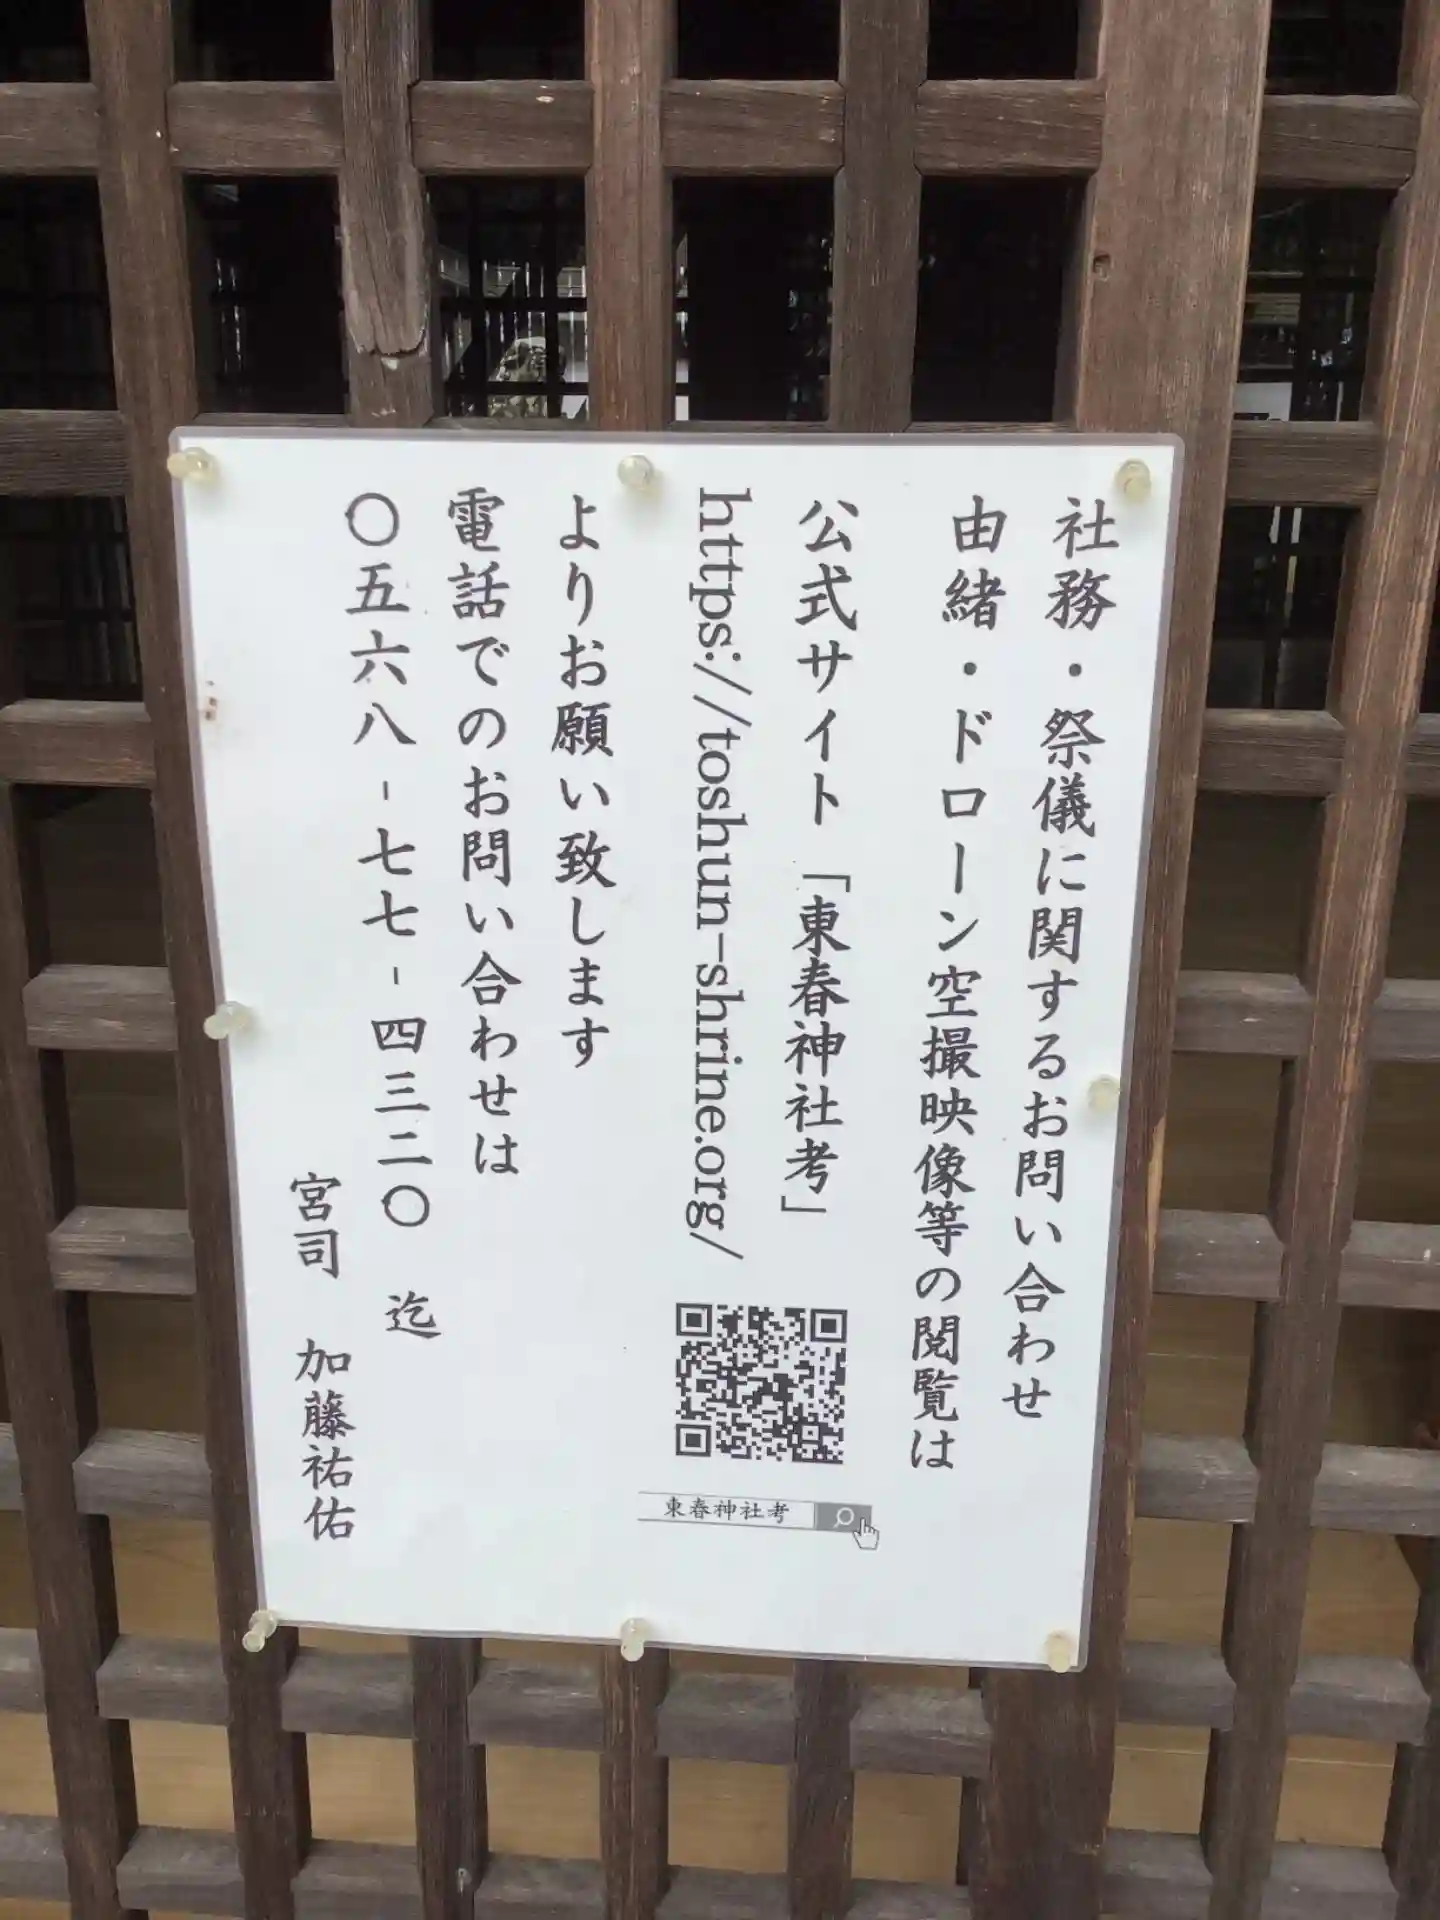 社務・祭儀に関するお問い合わせ
由緒・ドローン空撮映像等の閲覧は
公式サイト「東春神社考」
https://toshun-shrine.org/
よりお願い致します
電話でのお問い合わせは
〇五六八-七七-四三二〇 迄
宮司 加藤祐佑
東春神社考